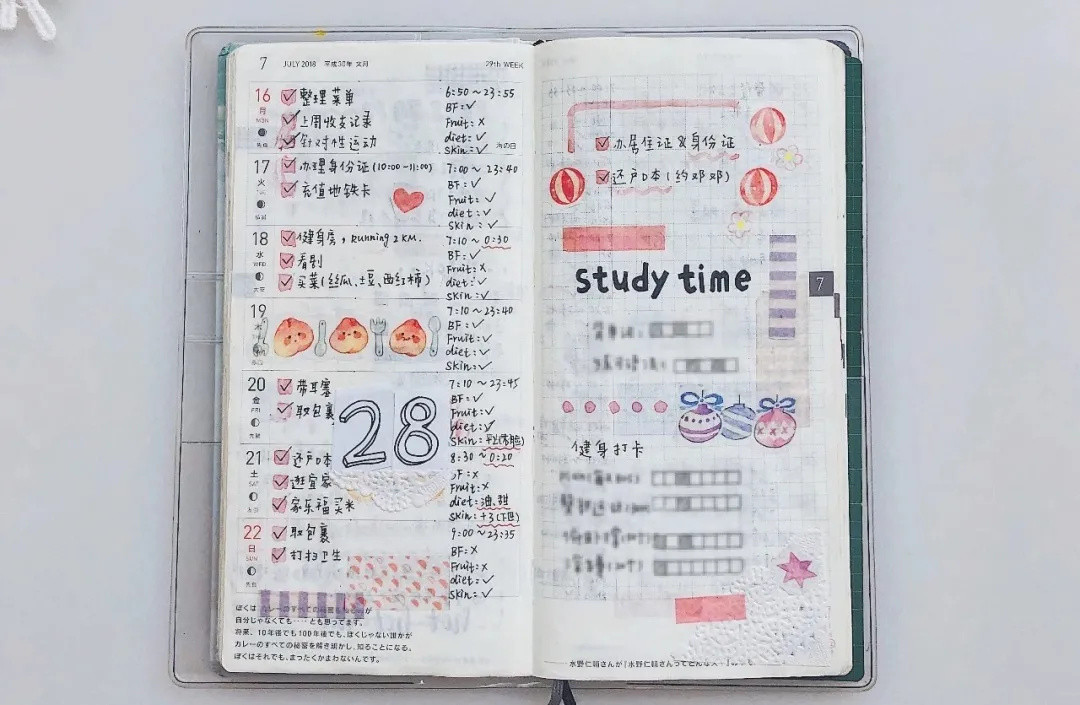 7 JULY 2018 平成30年 文月
29th WEEK
16 月 MON
整理菜单
上周收支记录
针对性运动
6:50~23:55
BF:✓
Fruit:×
diet:✓
skin:✓
海の日
17 火
办理身份证(10:00-11:00)
充值地铁卡
7:00~23:40
BF:✓
Fruit:✓
diet:✓
skin:✓
18 水 WED
健身房,running 2KM.
看剧
买菜(丝瓜、土豆、西红柿)
7:10~0:30
BF:✓
Fruit:×
diet:✓
skin:✓
19 木
7:10~23:40
BF:✓
Fruit:✓
diet:✓
skin:✓
20 金 FRI
带耳塞
取包裹
28
7:10~23:45
BF:✓
Fruit:✓
diet:✓
skin:
21 土 SAT
还户口本
逛宜家
家乐福买米
8:30~0:20
F:×
Fruit:×
diet:油、甜
skin:+3(下巴)
22 日 SUN
取包裹
打扫卫生
9:00~23:35
BF:×
Fruit:×
diet:✓
skin:✓
ぼくは カレーのすべての秘密を が
自分じゃなくても……とも思ってます。
将来、10年後でも100年後でも、ぼくじゃない誰かが
カレーのすべての秘密を解き明かし、知ることになる。
ぼくはそれでも、まったくかまわないんです。
办居住证&身份证
还户口本(约邓邓)
study time
7
健身打卡
水野仁輔さんが『水野仁輔さんってどんな人